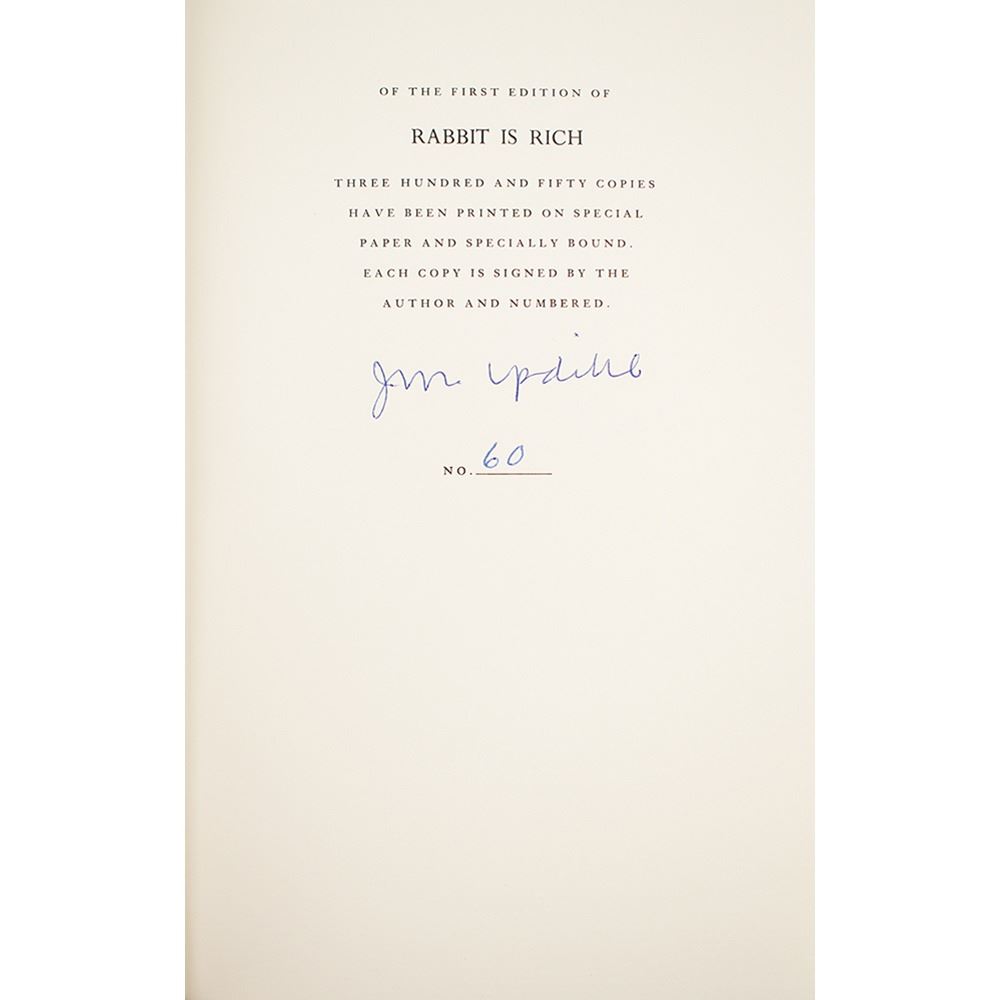 OF THE FIRST EDITION OF
RABBIT IS RICH
THREE HUNDRED AND FIFTY COPIES
HAVE BEEN PRINTED ON SPECIAL
PAPER AND SPECIALLY BOUND.
EACH COPY IS SIGNED BY THE
AUTHOR AND NUMBERED.
John Updike
NO. 60